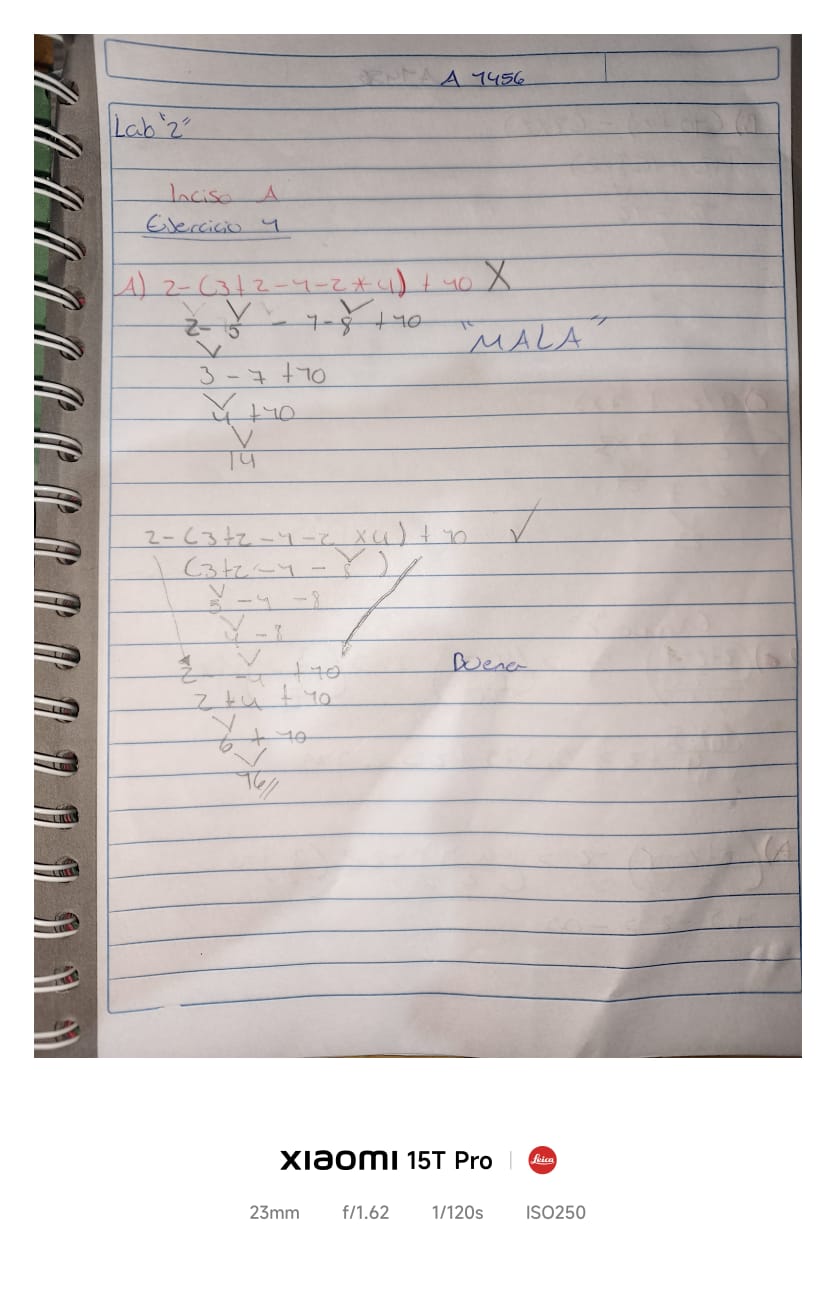 A 1456
Lab "2"
Inciso A
Ejercicio 1
A) 2-(3+2-1-2*4)+10 X
2-5 - 1-8 +10
"MALA"
3-7+10
4+10
14
2-(3+2-1-2x4)+10 ✓
(3+2-1-8)
5-1-8
4-8
2- -4 +10
Buena
2+4+10
6+10
16//
XIAOMI 15T Pro | Leica
23mm f/1.62 1/120s ISO250